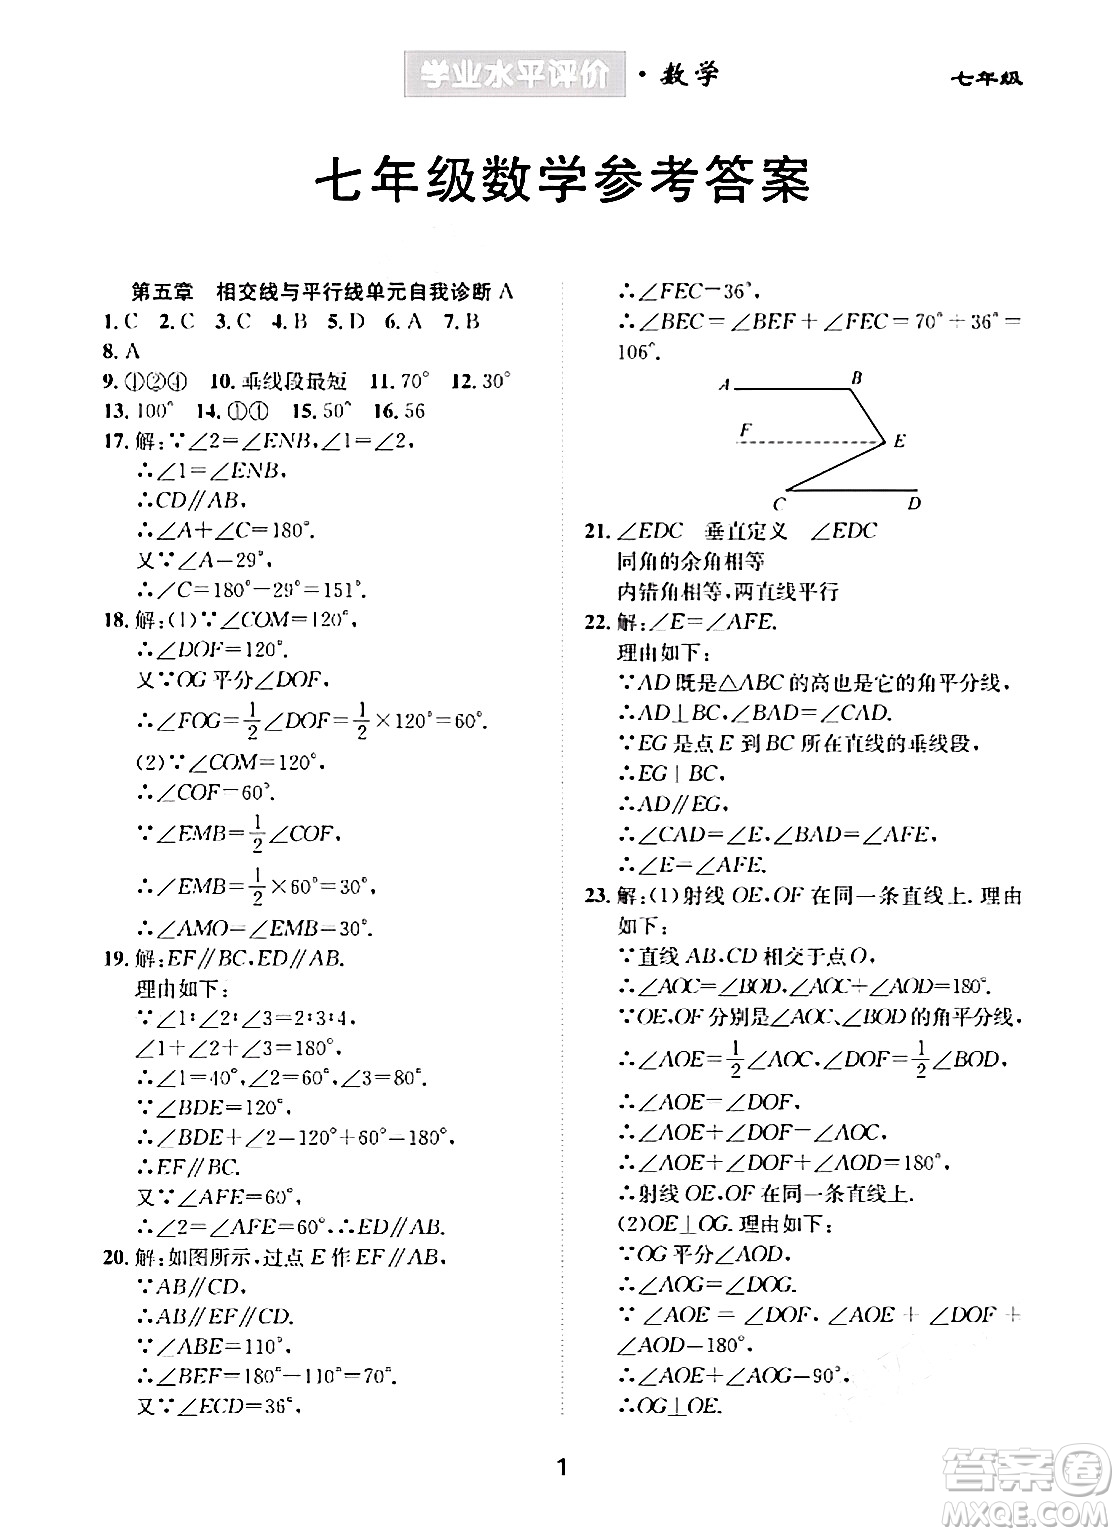 学业水平评价·数学
七年级
七年级数学参考答案
第五章 相交线与平行线单元自我诊断 A
1. C 2. C 3. C 4. B 5. D 6. A 7. B
8. A
9. ①②④ 10. 垂线段最短 11. 70° 12. 30°
13. 100° 14. ①① 15. 50° 16. 56
17. 解:∵∠2=∠ENB,∠1=∠2,
∴∠1=∠ENB,
∴CD∥AB,
∴∠A+∠C=180°.
又∵∠A=29°,
∴∠C=180°-29°=151°.
18. 解:(1)∵∠COM=120°,
∴∠DOF=120°.
又∵OG平分∠DOF,
∴∠FOG=1/2∠DOF=1/2×120°=60°.
(2)∵∠COM=120°,
∴∠COF=60°.
∵∠EMB=1/2∠COF,
∴∠EMB=1/2×60°=30°,
∴∠AMO=∠EMB=30°.
19. 解:EF∥BC,ED∥AB.
理由如下:
∵∠1:∠2:∠3=2:3:4,
∠1+∠2+∠3=180°,
∴∠1=40°,∠2=60°,∠3=80°.
∵∠BDE=120°,
∴∠BDE+∠2=120°+60°=180°,
∴EF∥BC.
又∵∠AFE=60°,
∴∠2=∠AFE=60°,∴ED∥AB.
20. 解:如图所示,过点E作EF∥AB,
∵AB∥CD,
∴AB∥EF∥CD.
∵∠ABE=110°,
∴∠BEF=180°-110°=70°.
又∵∠ECD=36°,
∴∠FEC=36°,
∴∠BEC=∠BEF+∠FEC=70°+36°=
106°.
A B
F E
C D
21. ∠EDC 垂直定义 ∠EDC
同角的余角相等
内错角相等,两直线平行
22. 解:∠E=∠AFE.
理由如下:
∵AD既是△ABC的高也是它的角平分线,
∴AD⊥BC,∠BAD=∠CAD.
∵EG是点E到BC所在直线的垂线段,
∴EG⊥BC,
∴AD∥EG,
∴∠CAD=∠E,∠BAD=∠AFE,
∴∠E=∠AFE.
23. 解:(1)射线OE,OF在同一条直线上. 理由
如下:
∵直线AB,CD相交于点O,
∴∠AOC=∠BOD,∠AOC+∠AOD=180°.
∵OE,OF分别是∠AOC、∠BOD的角平分线,
∴∠AOE=1/2∠AOC,∠DOF=1/2∠BOD,
∴∠AOE=∠DOF,
∴∠AOE+∠DOF=∠AOC,
∴∠AOE+∠DOF+∠AOD=180°,
∴射线OE,OF在同一条直线上.
(2)OE⊥OG. 理由如下:
∵OG平分∠AOD,
∴∠AOG=∠DOG.
∵∠AOE=∠DOF,∠AOE+∠DOF+
∠AOD=180°,
∴∠AOE+∠AOG=90°,
∴OG⊥OE.
1
答案圈
MXQE.COM